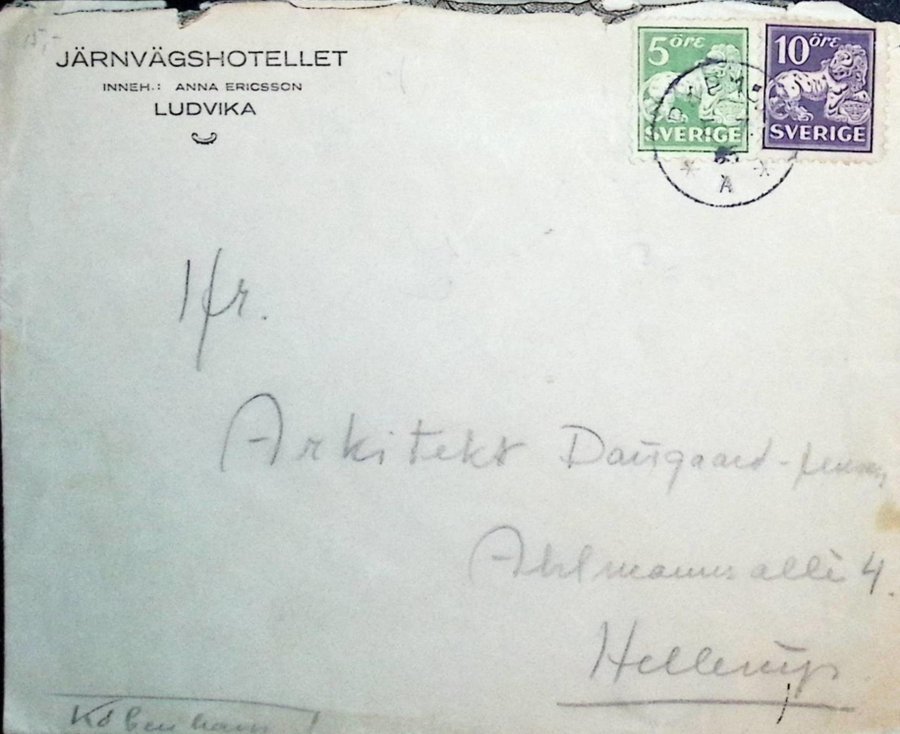 15,-
JÄRNVÄGSHOTELLET
INNEH.: ANNA ERICSSON
LUDVIKA
5 öre
SVERIGE
10 öre
SVERIGE
A
Hr.
Arkitekt Daugaard-
Ahlmanns allé 4.
Hellerup.
København